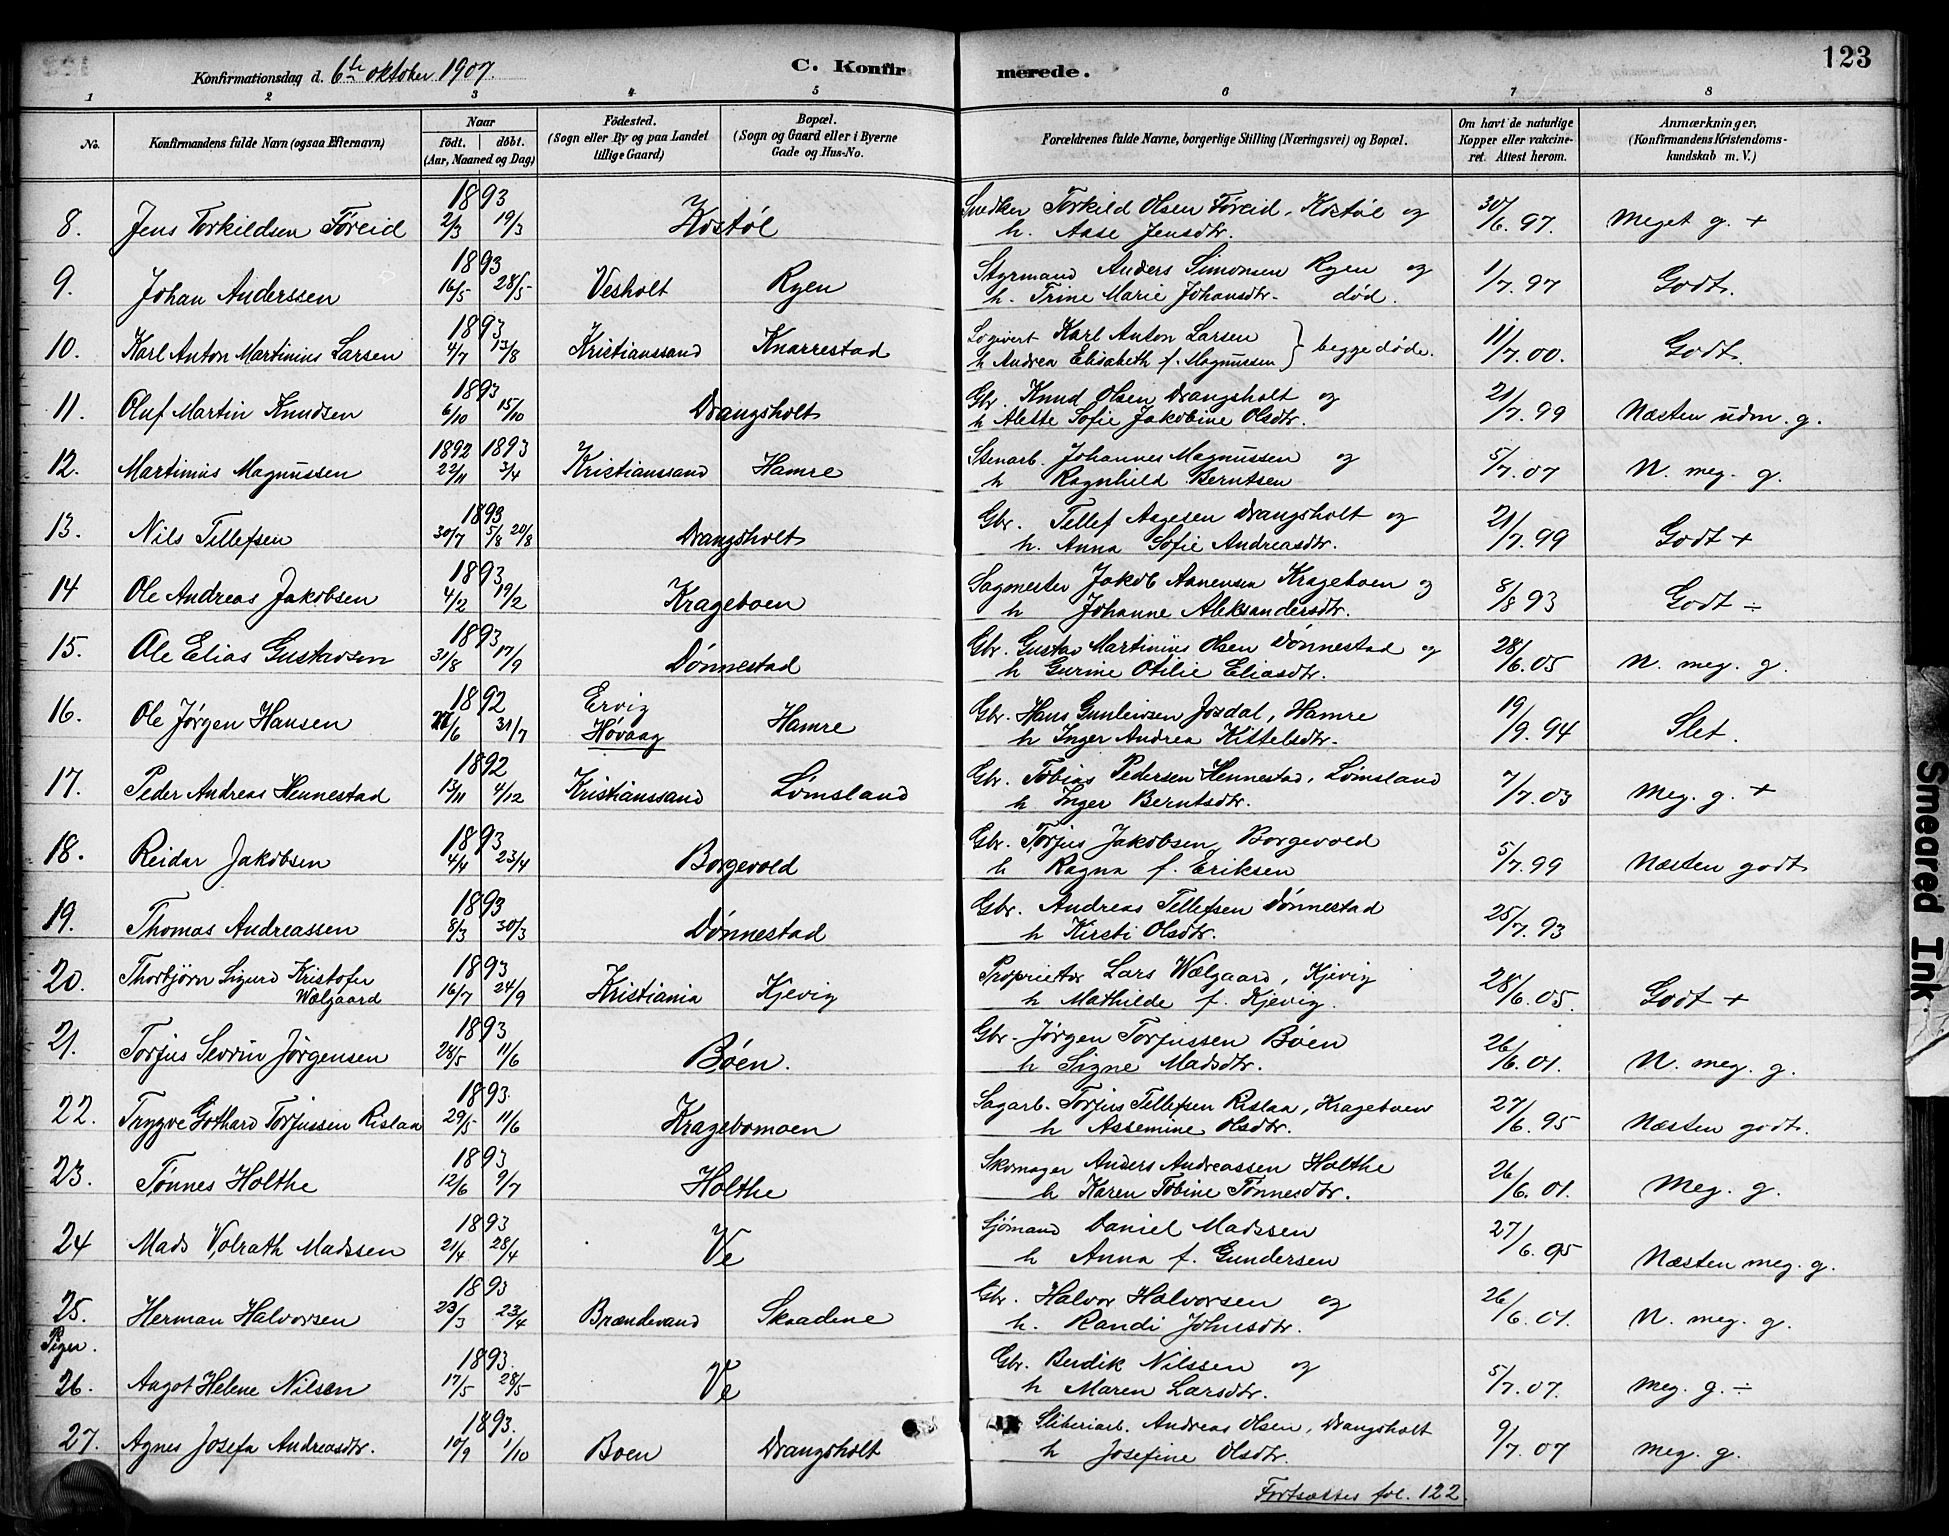 123
Konfirmationsdag d. 6te oktober 1907. C. Konfirmerede.
1 2 3 4 5 6 7 8
No. Konfirmandens fulde Navn (ogsaa Efternavn) Naar født. døbt. (Aar, Maaned og Dag) Fødested. (Sogn eller By og paa Landet tillige Gaard) Bopæl. (Sogn og Gaard eller i Byerne Gade og Hus-No. Forældrenes fulde Navne, borgerlige Stilling (Næringsvei) og Bopæl. Om havt de naturlige Kopper eller vakcineret. Attest herom. Anmærkninger, (Konfirmandens Kristendomskundskab m. V.)
1893
8. Jens Torkildsen Føreid 2/3 19/3 Kostøl Snedker Torkild Olsen Føreid, Kostøl og 30/6. 97. Meget g. +
h. Aase Jensdtr.
1893
9. Johan Anderssen 16/5 28/5 Vesholt Ryen Styrmand Anders Simonsen Ryen og 1/7. 97 Godt.
h. Trine Marie Johansdtr. død.
1893
10. Karl Anton Martinius Larsen 4/7 13/8 Kristianssand Knarrestad Logivert Karl Anton Larsen } begge døde. 11/7. 00. Godt.
h Andrea Elisabeth f. Magnussen
1893
11. Oluf Martin Knudsen 6/10 15/10 Drangsholt Gbr. Knud Olsen Drangsholt og 21/7. 99 Næsten udm. g.
h Alette Sofie Jakobine Olsdtr.
1892 1893
12. Martinius Magnussen 22/11 3/4 Kristianssand Hamre Stenarb. Johannes Magnussen og 5/7. 07 N. meg. g.
h Ragnhild Berntsen
1893
13. Nils Tellefsen 30/7 5/8 20/8 Drangsholt Gbr. Tellef Aagesen Drangsholt og 21/7. 99 Godt +
h. Anna Sofie Andreasdtr.
1893
14 Ole Andreas Jakobsen 4/2 19/2 Krageboen Sagmester Jakob Aanensen Krageboen og 8/8 93 Godt ÷
h Johanne Aleksandersdtr.
1893
15. Ole Elias Gustavsen 31/8 17/9 Dønnestad Gbr. Gustav Martinius Olsen Dønnestad og 28/6. 05 N. meg. g.
h Gurine Otilie Eliasdtr.
1892
16. Ole Jørgen Hansen 27/6 31/7 Ervig Høvaag Hamre Gbr. Hans Gunleivsen Josdal, Hamre 19/9. 94 Slet.
h Inger Andrea Kittelsdtr.
1892
17. Peder Andreas Hennestad 13/11 4/12 Kristianssand Lømsland Gbr. Tobias Pedersen Hennestad, Lømsland 7/7. 03 Meg. g. +
h Inger Berntsdtr.
1893
18. Reidar Jakobsen 4/4 23/4 Borgevold Gbr. Torjus Jakobsen, Borgevold 5/7. 99 Næsten godt
h Ragna f. Eriksen
1893
19. Thomas Andreassen 8/3 30/3 Dønnestad Gbr. Andreas Tellefsen Dønnestad 25/7. 93
h Kirsti Olsdtr.
1893
20. Thorbjørn Sigurd Kristofer Wælgaard 16/7 24/9 Kristiania Kjevig Proprietær Lars Wælgaard, Kjevig 28/6. 05. Godt +
h Mathilde f. Kjevig.
1893
21. Torjus Severin Jørgensen 28/5 11/6 Bøen. Gbr. Jørgen Torjussen Bøen 26/6. 01. N. meg. g.
h Signe Madsdtr.
1893.
22. Trygve Gothard Torjussen Rislaa 29/5 11/6 Kragebomoen Sagarb. Torjus Tellefsen Rislaa, Krageboen 27/6. 95 Næsten godt.
h Assemine Olsdtr.
1893
23. Tønnes Holthe 12/6 9/7 Holthe Skomager Anders Andreassen Holthe 26/6. 01. Meg. g.
h Karen Tobine Tønnesdtr.
1893
24 Mads Volrath Madssen 21/4 28/4 Ve Sjømand Daniel Madssen 27/6. 95 Næsten meg. g.
h Anna f. Gundersen
1893
25. Herman Halvorsen 23/3 23/4 Brændevand Skaadene Gbr. Halvor Halvorsen og 26/6. 01. N. meg. g.
h. Randi Johnsdtr.
Piger.
1893.
26. Aagot Helene Nilsen 17/5 28/5 Ve Gbr. Berdik Nilssen og 5/7. 07. Meg. g. ÷
h Maren Larsdtr.
1893.
27. Agnes Josefa Andreasdtr. 10/9 1/10 Boen Drangsholt Sliberiarb. Andreas Olsen, Drangsholt 9/7. 07 Meg. g.
h Josefine Olsdtr.
Fortsættes fol. 122.
Smeared Ink.